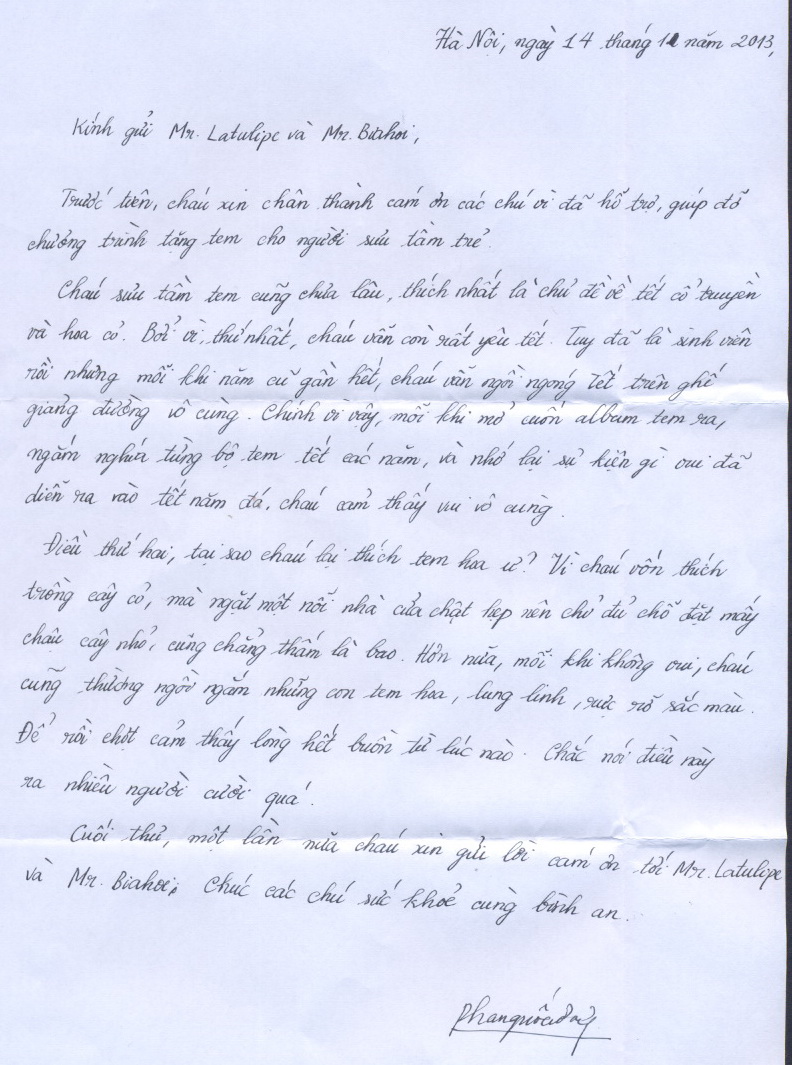 Hà Nội, ngày 14 tháng 11 năm 2013,
Kính gửi Mr. Latulipe và Mr. Biahoi,
Trước tiên, cháu xin chân thành cám ơn các chú vì đã hỗ trợ, giúp đỡ
chương trình tặng tem cho người sưu tầm trẻ.
Cháu sưu tầm tem cũng chưa lâu, thích nhất là chủ đề về tết cổ truyền
và hoa cỏ. Bởi vì, thứ nhất, cháu vẫn còn rất yêu tết. Tuy đã là sinh viên
rồi nhưng mỗi khi năm cũ gần hết, cháu vẫn ngồi ngóng Tết trên ghế
giảng đường vô cùng. Chính vì vậy, mỗi khi mở cuốn album tem ra,
ngắm nghía từng bộ tem tết các năm, và nhớ lại sự kiện gì vui đã
diễn ra vào tết năm đó, cháu cảm thấy vui vô cùng.
Điều thứ hai, tại sao cháu lại thích tem hoa ư? Vì cháu vốn thích
trồng cây cỏ, mà ngặt một nỗi nhà cửa chật hẹp nên chỉ đủ chỗ đặt mấy
chậu cây nhỏ, cũng chẳng thấm là bao. Hơn nữa, mỗi khi không vui, cháu
cũng thường ngồi ngắm những con tem hoa, lung linh, rực rỡ sắc màu.
Để rồi chợt cảm thấy lòng hết buồn từ lúc nào. Chắc nói điều này
ra nhiều người cười quá.
Cuối thư, một lần nữa cháu xin gửi lời cám ơn tới Mr. Latulipe
và Mr. Biahoi. Chúc các chú sức khoẻ cùng bình an.